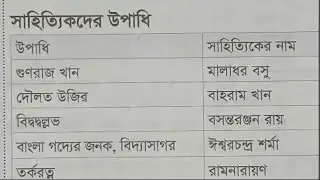 সাহিত্যিকদের উপাধি
উপাধি সাহিত্যিকের নাম
গুণরাজ খান মালাধর বসু
দৌলত উজির বাহরাম খান
বিদ্বদ্বল্লভ বসন্তরঞ্জন রায়
বাংলা গদ্যের জনক, বিদ্যাসাগর ঈশ্বরচন্দ্র শর্মা
তর্করত্ন রামনারায়ণ